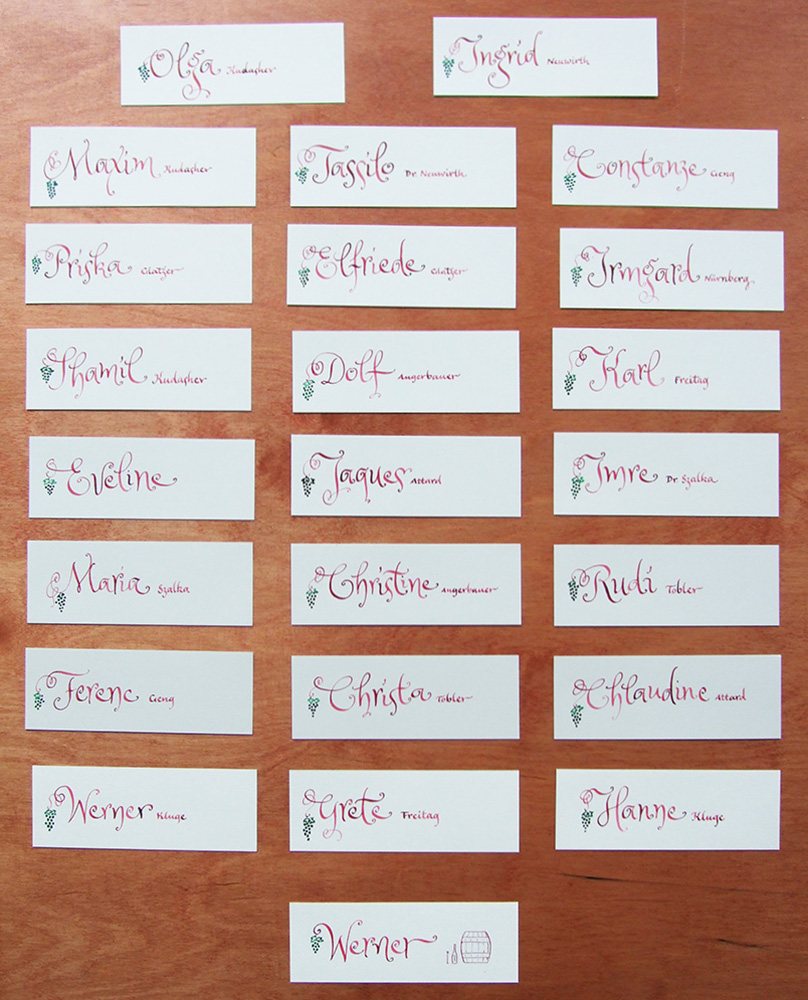 Olga Kudasher
Ingrid Neuwirth
Maxim Kudasher
Tassilo Dr. Neuwirth
Constanze Geng
Priska Glatzer
Elfriede Glatzer
Irmgard Nürnberg
Shamil Kudasher
Dolf Angerbauer
Karl Freitag
Eveline
Jaques Attard
Imre Dr Szalka
Maria Szalka
Christine Angerbauer
Rudi Tobler
Ferenc Geng
Christa Tobler
Chlaudine Attard
Werner Kluge
Grete Freitag
Hanne Kluge
Werner